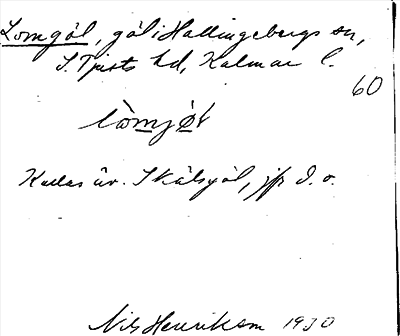 Lomgöl, göl i Hallingebergs sn,
S. Tjusts hd, Kalmar l.
60
lòmjø̀l
Kallas äv. Skälsgöl, jfr d. o.
Nils Henrikson 1930